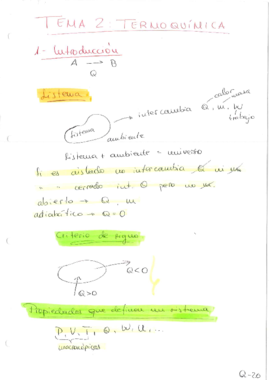 TEMA 2 TERMOQUÍMICA
1.- Introducción
A → B
Q
Sistema:
calor masa
Sistema → intercambia Q, m, W
trabajo
ambiente
Sistema + ambiente = universo
es aislado no intercambia Q ni m
" " cerrado int. Q pero no m.
abierto → Q, m
adiabático → Q=0
Criterio de signo
Q<0
Q>0
Propiedades que definen un sistema
P, V, T, Q, W, U, ...
macroscópicas
Q-20